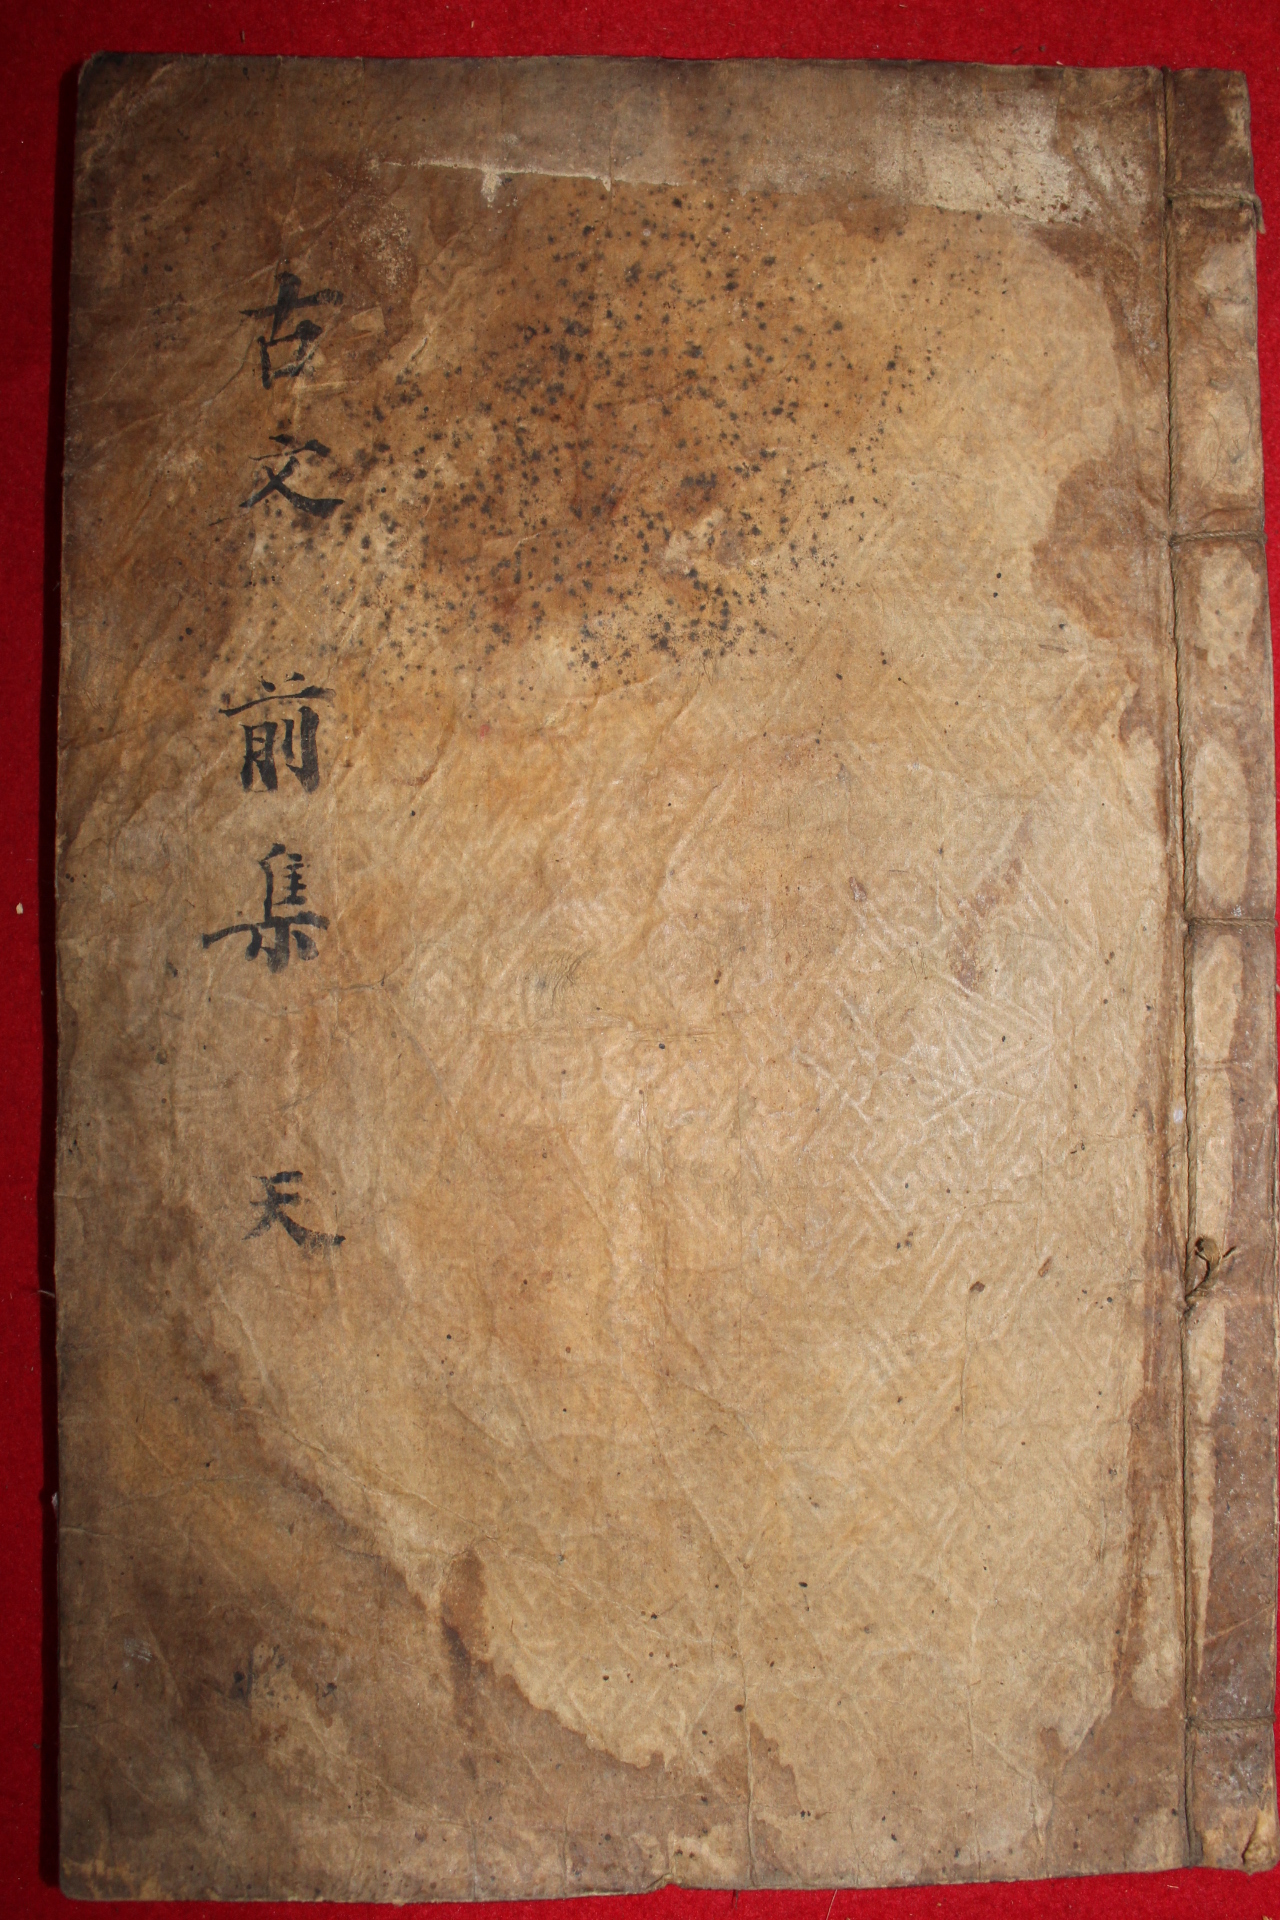 古文前集 天